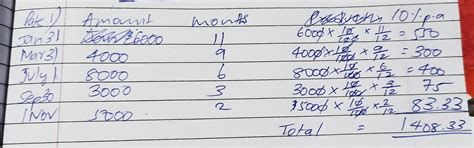 Date 1) Amount Months 10% p.a
Jan 31 6000 11 6000 × 10/100 × 11/12 = 550
Mar 31 4000 9 4000 × 10/100 × 9/12 = 300
July 1 8000 6 8000 × 10/100 × 6/12 = 400
Sep 30 3000 3 3000 × 10/100 × 3/12 75
1 Nov 5000 2 5000 × 10/100 × 2/12 83.33
Total = 1408.33